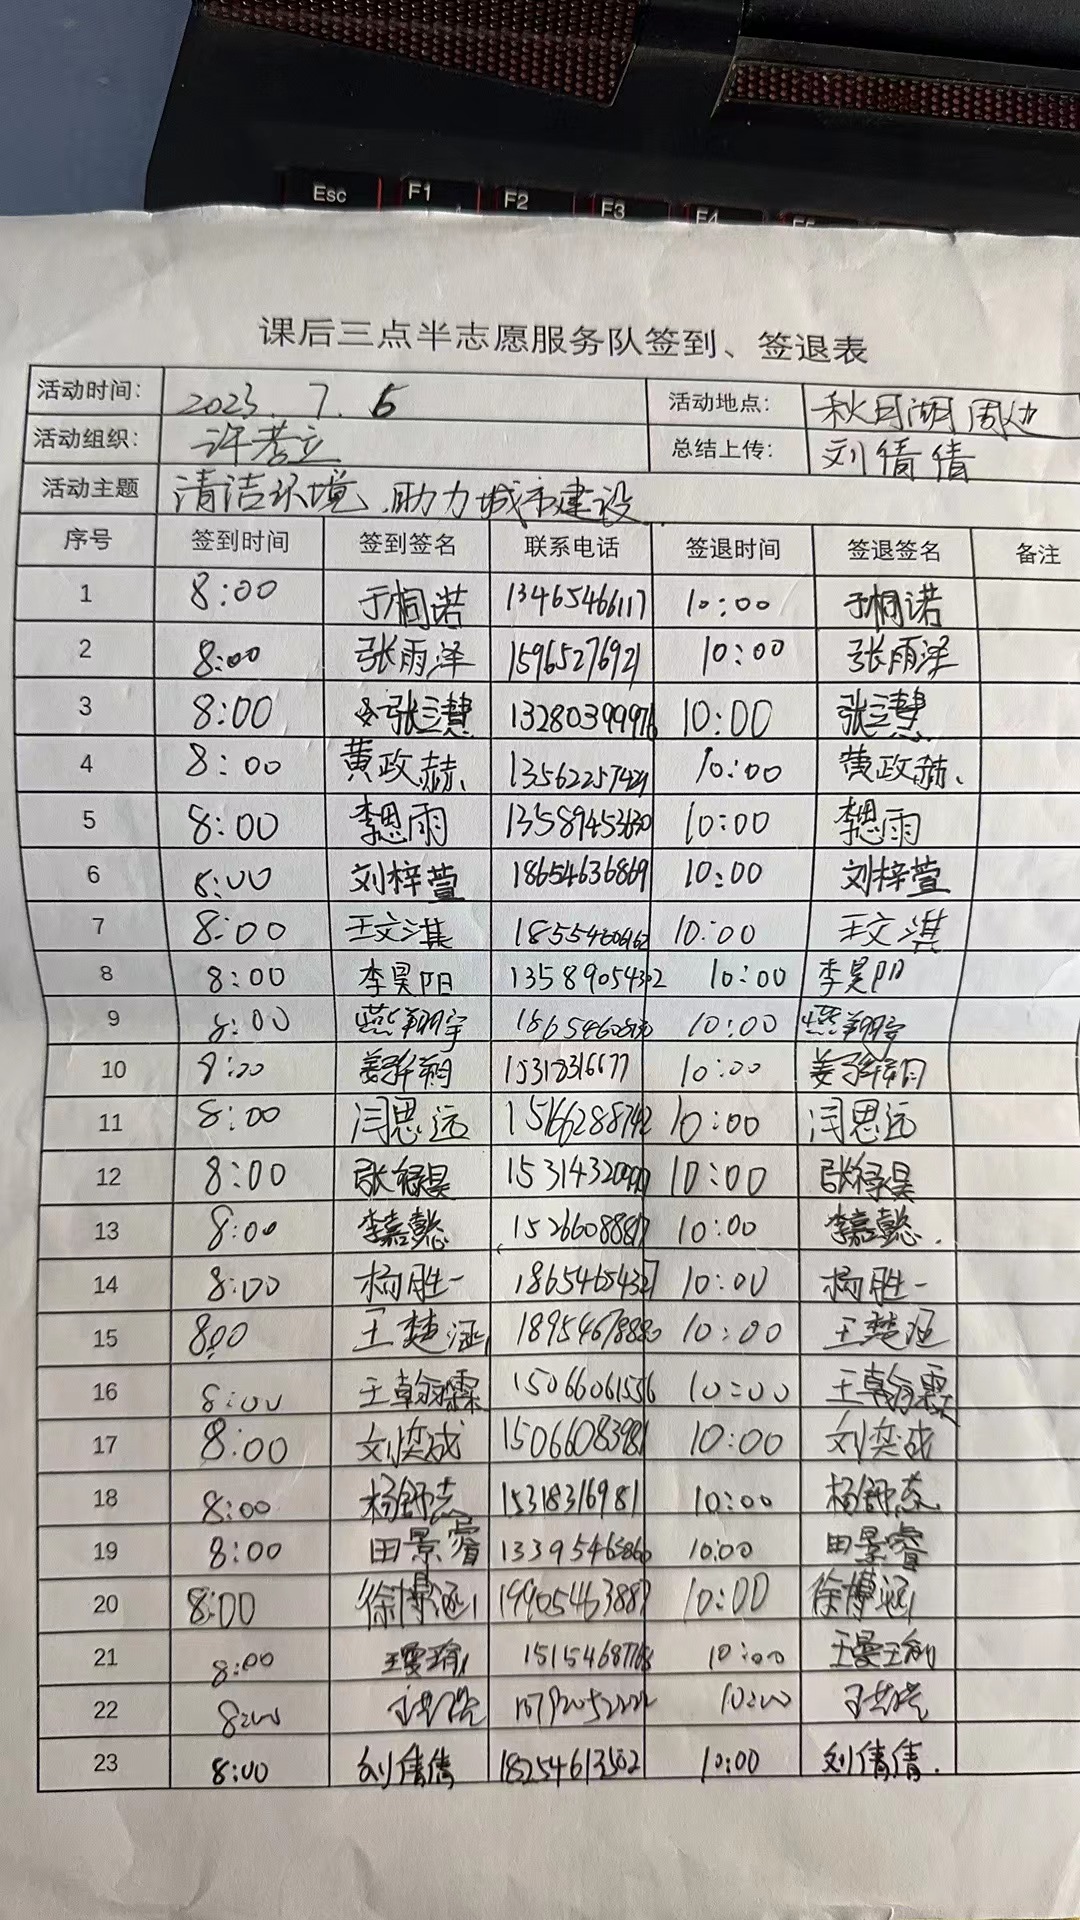 Esc F1 F2 F3 F4 F5
课后三点半志愿服务队签到、签退表
活动时间: 2023. 7. 6 活动地点: 秋月湖周边
活动组织: 许孝立 总结上传: 刘倩倩
活动主题 清洁环境、助力城市建设.
序号 签到时间 签到签名 联系电话 签退时间 签退签名 备注
1 8:00 于桐诺 13465466117 10:00 于桐诺
2 8:00 张雨泽 15965276921 10:00 张雨泽
3 8:00 张三慧 13280399976 10:00 张三慧
4 8:00 黄政赫 13562257421 10:00 黄政赫
5 8:00 李思雨 13589453630 10:00 李思雨
6 8:00 刘梓萱 18654636869 10:00 刘梓萱
7 8:00 王文淇 10:00 王文淇
8 8:00 李昊阳 13589054302 10:00 李昊阳
9 8:00 燕翔宇 10:00 燕翔宇
10 8:00 15318316677 10:00
11 8:00 闫思远 15166288742 10:00 闫思远
12 8:00 张禄昊 10:00 张禄昊
13 8:00 李嘉懿 15266088817 10:00 李嘉懿.
14 8:00 杨胜一 18654654327 10:00 杨胜一
15 8:00 王楚涵 18954678880 10:00 王楚涵
16 8:00 王翰霖 15066061556 10:00 王翰霖
17 8:00 刘奕成 15066083981 10:00 刘奕成
18 8:00 15318316981 10:00
19 8:00 田景睿 13395465866 10:00 田景睿
20 8:00 徐博涵 19905463887 10:00 徐博涵
21 8:00 王曼瑜 15154687768 10:00 王曼瑜
22 8:00 10:00
23 8:00 刘倩倩 18254613502 10:00 刘倩倩.